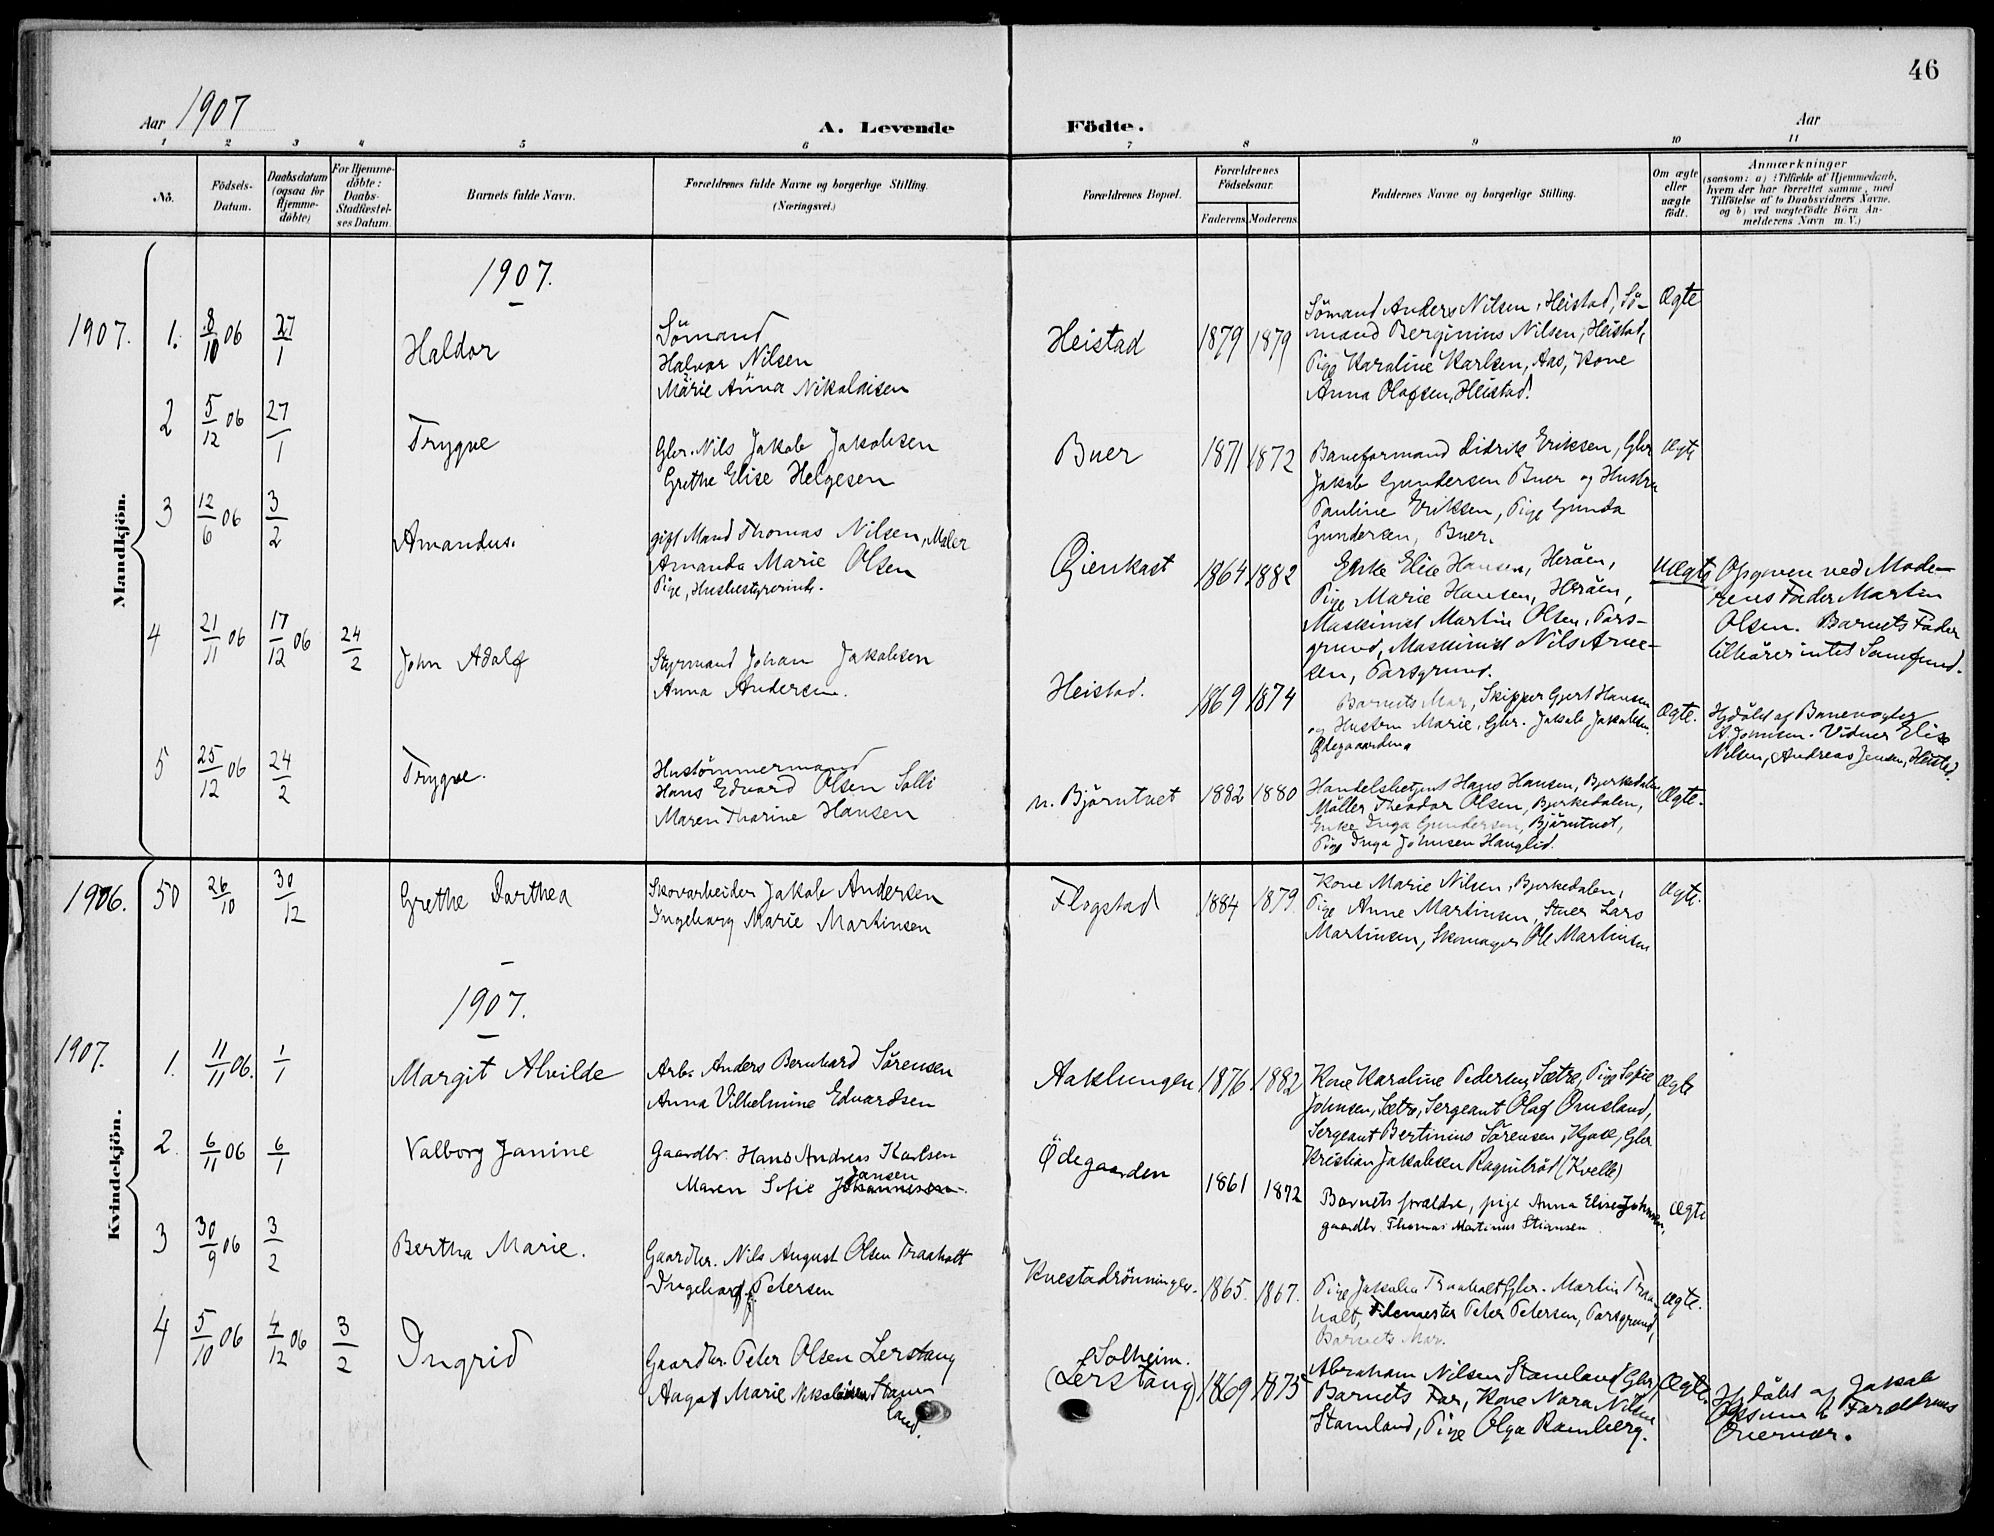 46
Aar 1907
A. Levende Födte.
Aar
1 2 3 4 5 6 7 8 9 10 11
No.
Födsels-
Datum.
Daabsdatum
(ogsaa for
Hjemme-
döbte)
For Hjemme-
döbte:
Daabs-
Stadfæstel-
ses Datum.
Barnets fulde Navn.
Forældrenes fulde Navne og borgerlige Stilling.
(Næringsvei.)
Forældrenes Bopæl.
Forældrenes
Födselsaar.
Faderens. Moderens.
Faddernes Navne og borgerlige Stilling.
Om ægte
eller
uægte
födt.
Anmærkninger
(saasom: a) i Tilfælde af Hjemmedaab,
hvem der har forrettet samme, med
Tilföielse af to Daabsvidners Navne,
og b) ved uægtefödte Börn An-
melderens Navn m. V.)
Mandkjön.
1907.
1907. 1. 8/10 06 27/1 Haldor
Sömand
Halvor Nilsen
Marie Anna Nikolaisen
Heistad 1879 1879
Sömand Anders Nilsen, Heistad, Sö-
mand Berginius Nilsen, Heistad,
Pige Karoline Karlsen, Aas, Kone
Anna Olafsen, Heistad.
Ægte
2 5/12 06 27/1 Trygve
Gbr. Nils Jakob Jakobsen
Grethe Elise Helgesen
Buer 1871 1872
Baneformand Didrik Eriksen, Gbr
Jakob Gundersen Buer og Hustru
Pauline Eriksen, Pige Gunda
Gundersen, Buer.
Ægte
3 12/6 06 3/2 Amandus.
gift Mand Thomas Nilsen, Maler
Amanda Marie Olsen
Pige, Husbestyrerinde.
Öienkast 1864 1882
Enke Elise Hansen, Heröen,
Pige Marie Hansen, Heröen,
Maskinist Martin Olsen, Pors-
grund, Maskinist Nils Arne-
sen, Porsgrund.
Uægte
Opgiven ved Mode-
rens Fader Martin
Olsen. Barnets Fader
tilhörer intet Samfund.
4 21/11 06 17/12 06 24/2 John Adolf
Styrmand Johan Jakobsen
Anna Andersen.
Heistad. 1869 1874
Barnets Mor, Skipper Gjert Hansen
og Hustru Marie, Gbr. Jakob Jakobsen
Ödegaarden
Ægte.
Hjdöbt af Banevogter
A. Johnsen. Vidner Elise
Nilsen, Andreas Jensen, Heistad.
5 25/12 06 24/2 Trygve.
Hustömmermand
Hans Edvard Olsen Solli
Maren Thorine Hansen
n. Björntvet 1882 1880
Handelsbetjent Hans Hansen, Bjerkedalen
Möller Theodor Olsen, Bjerkedalen,
Enke Inga Gundersen, Björntvet,
Pige Inga Johnsen Hauglid.
Ægte.
Kvindekjön.
1906. 50 26/10 30/12 Grethe Dorthea
Skovarbeider Jakob Andersen
Ingeborg Marie Martinsen
Flogstad 1884 1879.
Kone Marie Nilsen, Bjerkedalen,
Pige Anne Martinsen, Stuer Lars
Martinsen, Skomager Ole Martinsen
Ægte.
1907.
1907. 1. 11/11 06. 1/1 Margit Alvilde
Arb. Anders Bernhard Sörensen
Anna Vilhelmine Edvardsen
Aaklungen 1876 1882
Kone Karoline Pedersen, Sætre, Pige Sofie
Johnsen, Sætre, Sergeant Olaf Omsland,
Sergeant Bertinius Sörensen, Kjose, Gbr
Kristian Jakobsen (Kvelle)
Ægte
2. 6/11 06 6/1 Valborg Janine
Gaardbr. Hans Andreas Karlsen
Jansen
Maren Sofie Johannesen.
Ödegaarden 1861 1872
Barnets forældre, pige Anna Elise Johnsen,
gaardbr. Thomas Martinus Stiansen
Ægte
3 30/9 06 3/2 Bertha Marie.
Gaardbr. Nils August Olsen Traaholt
Ingeborg Petersen
Knestadrönningen. 1865. 1867.
Pige Jakobea Traaholt Gbr. Martin Traa-
holt, Filemester Peter Petersen, Porsgrund,
Barnets Mor.
Ægte.
4 5/10 06 4/12 06 3/2 Ingrid
Gaardbr. Peter Olsen Lerstang
Aagot Marie Nikolaisen Stam
land.
Solheim.
(Lerstang) 1869 1875
Abraham Nilsen Stamland (Gbr)
Barnets Far, Kone Nora Nilsen
Stamland, Pige Olga Ramberg.
Ægte.
Hjdöbt af Jakob
Forældrenes
Overvær.